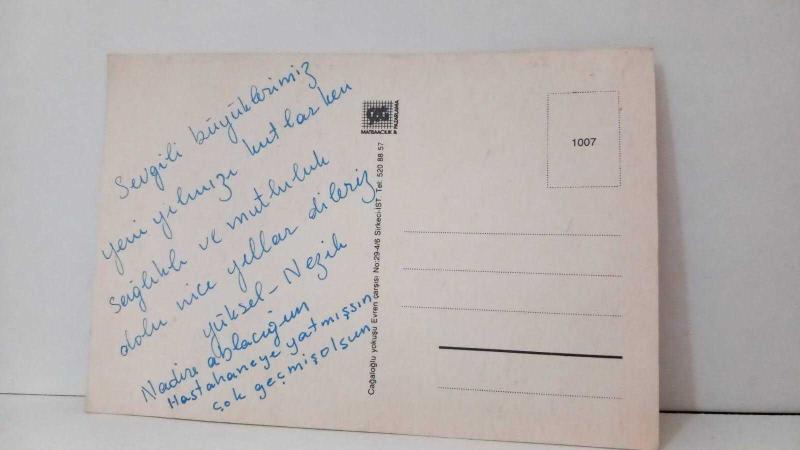 Sevgili büyüklerimiz
yeni yılınızı kutlarken
Sağlıklı ve mutluluk
dolu nice yıllar dileriz
yüksel - Nezih
Nadire ablacığım
Hastahaneye yatmışsın
çok geçmiş olsun
MATBAACILIK & PAZARLAMA
Cağaloğlu yokuşu Evren çarşısı No:29-4/6 Sirkeci-İST Tel: 520 88 57
1007